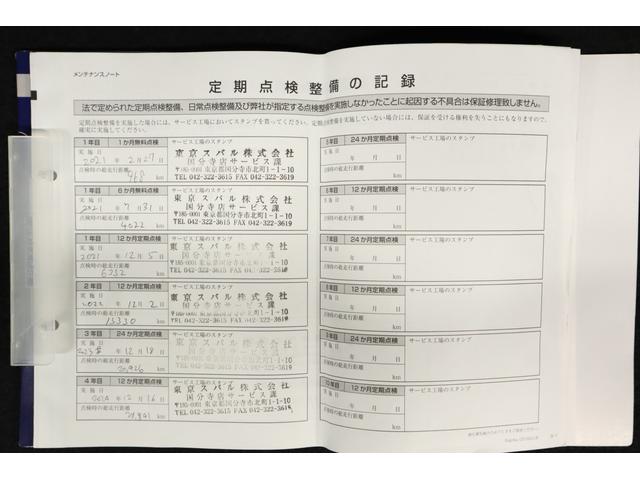 メンテナンスノート
定期点検整備の記録
法で定められた定期点検整備、日常点検整備及び弊社が指定する点検整備を実施しなかったことに起因する不具合は保証修理致しません。
定期点検整備を実施した場合には、サービス工場においてスタンプを貰ってください。定期点検整備を実施していない場合には、保証を受ける権利を失うことにもなりますので、
確実に実施してください。
1年目 1か月無料点検 サービス工場のスタンプ
実施日
2021 年 2月27日
点検時の総走行距離
468 km
東京スバル株式会社
国分寺店サービス課
〒185-0001 東京都国分寺市北町1-1-10
TEL 042-322-3615 FAX 042-322-3619
1年目 6か月無料点検 サービス工場のスタンプ
実施日
2021 年 7月31日
点検時の総走行距離
4022 km
東京スバル株式会社
国分寺店サービス課
〒185-0001 東京都国分寺市北町1-1-10
TEL 042-322-3615 FAX 042-322-3619
1年目 12か月定期点検 サービス工場のスタンプ
実施日
2021 年 12月5日
点検時の総走行距離
km
東京スバル株式会社
国分寺店サービス課
〒185-0001 東京都国分寺市北町1-1-10
TEL 042-322-3615 FAX 042-322-3619
2年目 12か月定期点検 サービス工場のスタンプ
実施日
2022 年 12月2日
点検時の総走行距離
13330 km
東京スバル株式会社
国分寺店サービス課
〒185-0001 東京都国分寺市北町1-1-10
TEL 042-322-3615 FAX 042-322-3619
3年目 24か月定期点検 サービス工場のスタンプ
実施日
2023年 12月18日
点検時の総走行距離
20,926 km
東京スバル株式会社
国分寺店サービス課
〒185-0001 東京都国分寺市北町1-1-10
TEL 042-322-3615 FAX 042-322-3619
4年目 12か月定期点検 サービス工場のスタンプ
実施日
2024年12月16日
点検時の総走行距離
km
東京スバル株式会社
国分寺店サービス課
〒185-0001 東京都国分寺市北町1-1-10
TEL 042-322-3615 FAX 042-322-3619
5年目 24か月定期点検 サービス工場のスタンプ
実施日
年 月 日
点検時の総走行距離
km
12か月定期点検 サービス工場のスタンプ
実施日
年 月 日
点検時の総走行距離
km
7年目 24か月定期点検 サービス工場のスタンプ
実施日
年 月 日
点検時の総走行距離
km
12か月定期点検 サービス工場のスタンプ
実施日
年 月 日
点検時の総走行距離
km
24か月定期点検 サービス工場のスタンプ
実施日
年 月 日
点検時の総走行距離
km
10年目 12か月定期点検 サービス工場のスタンプ
実施日
年 月 日
点検時の総走行距離
km